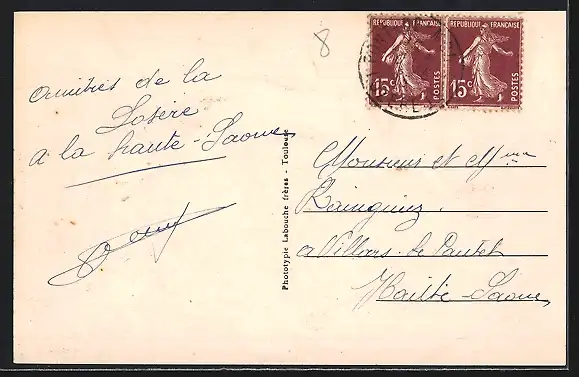 8
REPUBLIQUE FRANÇAISE
15c
POSTES
REPUBLIQUE FRANÇAISE
15c
POSTES
amitiés de la
Losère
a la haute-Saone
Phototypie Labouche frères - Toulouse
Monsieur et Mme
a Villars-le-Pautel
Haute-Saone